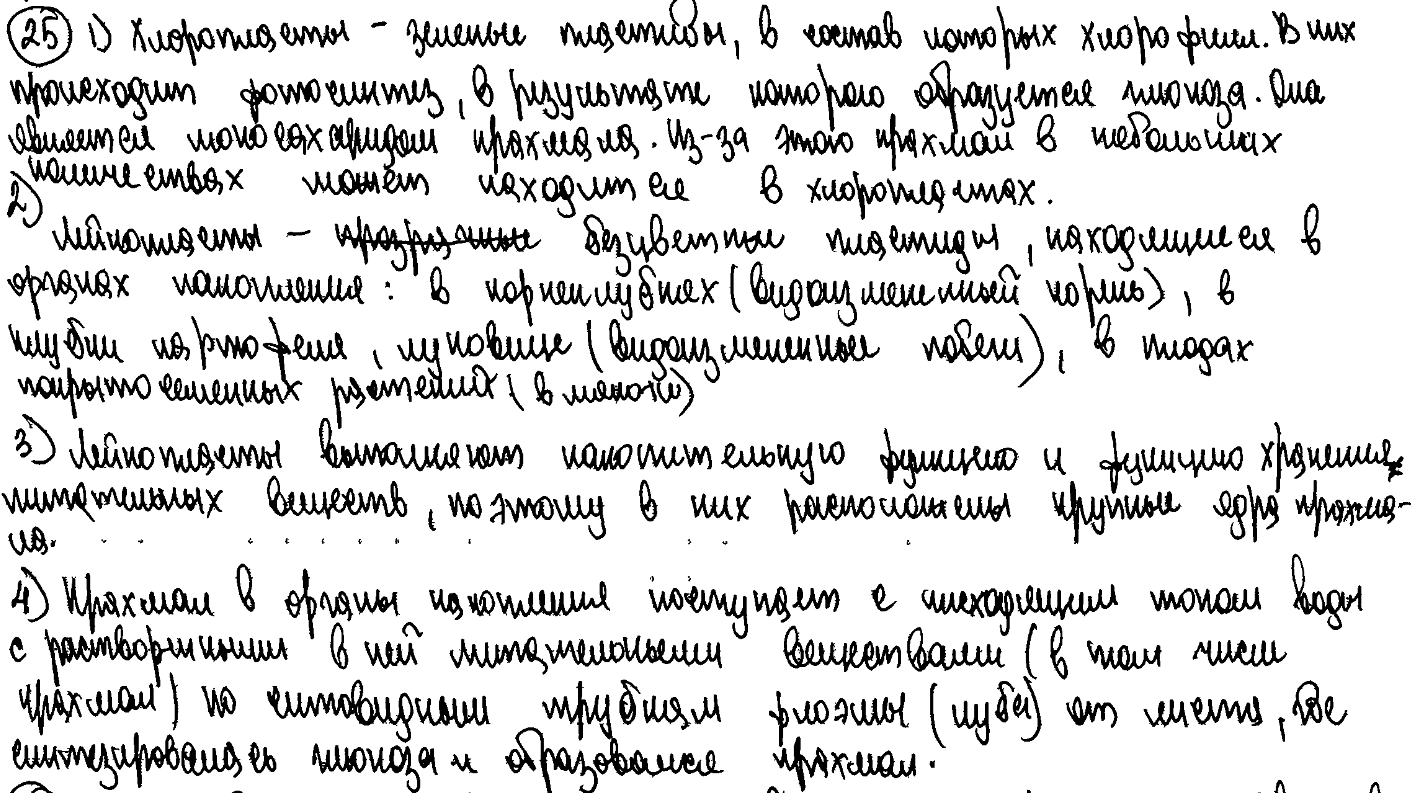 25 1) Хлоропласты - зеленые пластиды, в состав которых хлорофилл. В них
происходит фотосинтез, в результате которого образуется глюкоза. Она
является моносахаридом крахмала. Из-за этого крахмал в небольших
количествах может находится в хлоропластах.
2)
Лейкопласты - прозрачные безцветные пластиды, находящиеся в
органах накопления: в корнеклубнях (видоизмененный корень), в
клубни картофеля, луковице (видоизмененные побеги), в плодах
покрытосеменных растений (в мякоти)
3) Лейкопласты выполняют накопительную функцию и функцию хранения
питательных веществ, поэтому в них расположены крупные ядра крахма-
ла.
4) Крахмал в органы накопления поступает с нисходящим током воды
с растворенными в ней питательными веществами (в том числе
крахмал) по ситовидным трубкам флоэмы (луба) от листа, где
синтезировалась глюкоза и образовался крахмал.